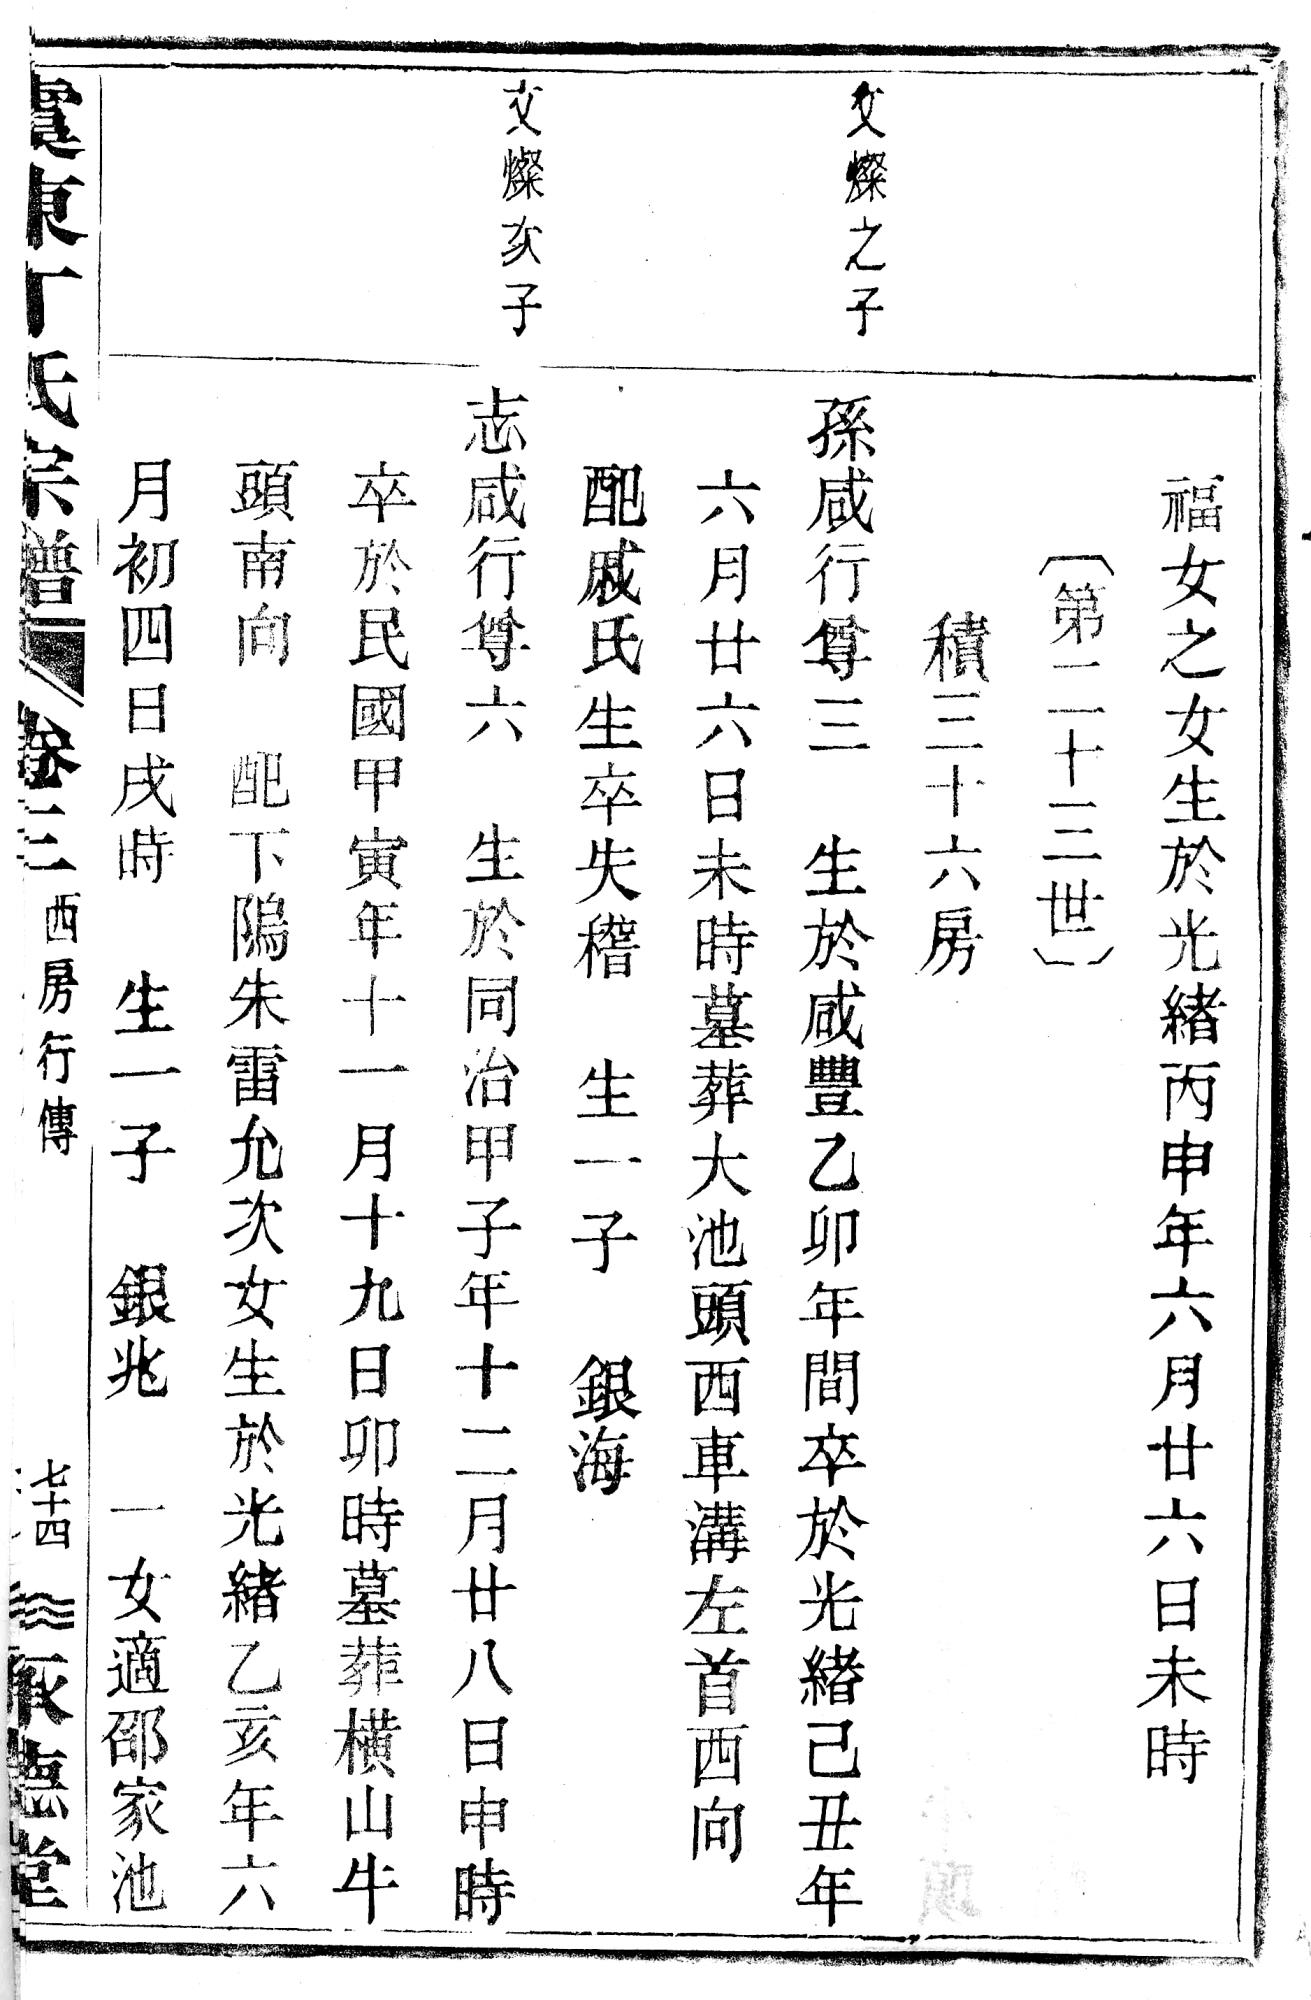 福女之女生於光緒丙申年六月廿六日未時
〔第二十三世〕
積三十六房
文燦之子
孫咸行尊三　生於咸豐乙卯年間卒於光緒己丑年
六月廿六日未時墓葬大池頭西車溝左首西向
配戚氏生卒失稽　生一子　銀海
文燦次子
志咸行尊六　生於同治甲子年十二月廿八日申時
卒於民國甲寅年十一月十九日卯時墓葬橫山牛
頭南向　配下隖朱雷允次女生於光緒乙亥年六
月初四日戌時　生一子　銀兆　一女適邵家池
虞東丁氏宗譜　卷三　西房行傳　七十四　承德堂